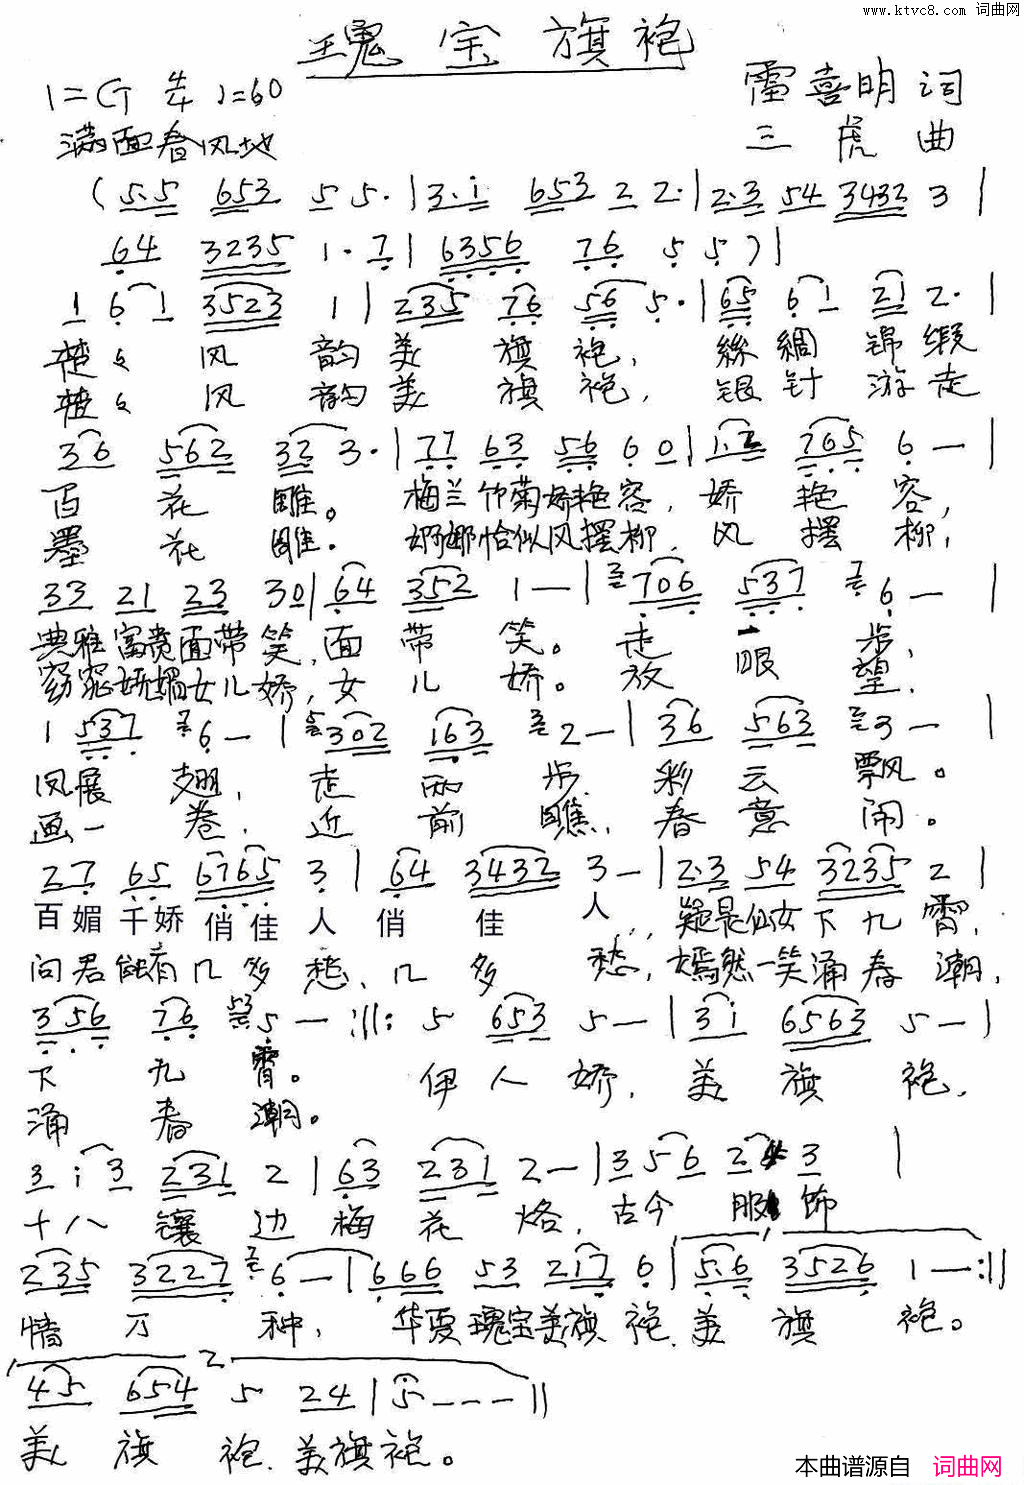 www.ktvc8.com 词曲网
瑰宝旗袍
1=G 4/4 ♩=60
雷喜明 词
满面春风地
三虎 曲
(5.5 653 5 5.|3.i 653 2 2.|2.3 54 3432 3|
64 3235 1.7|6356 76 5 5)|
1 6 1 3523 1|235 76 56 5.|65 61 21 2.|
楚楚风韵美旗袍,丝绸锦缎
楚楚风韵美旗袍,银针游走
36 562 32 3.|77 63 56 60|1.2 765 6—|
百花雕。梅兰竹菊娇艳容,娇艳容,
墨花雕。婀娜恰似风摆柳,风摆柳,
33 21 23 30|64 352 1—|706 537 6—|
典雅富贵面带笑,面带笑。走一步,
窈窕妩媚女儿娇,女儿娇。放眼望,
1 537 6—|302 163 2—|36 563 3—|
凤展翅,走两步,彩云飘。
画一卷,近前瞧,春意闹。
27 65 6765 3|64 3432 3—|2.3 54 3235 2|
百媚千娇俏佳人俏佳人,疑是仙女下九霄,
问君能有几多愁、几多愁,嫣然一笑涌春潮,
356 76 5—:||: 5 653 5—|3i 6563 5—|
下九霄。伊人娇,美旗袍,
涌春潮。
3 i 3 231 2|63 231 2—|3 56 2 3|
十八镶边梅花烙,古今服饰
235 3227 6—|666 53 217 6|5.6 3526 1—:||
情万种,华夏瑰宝美旗袍,美旗袍。
2
45 654 5 24|5———||
美旗袍,美旗袍。
本曲谱源自 词曲网